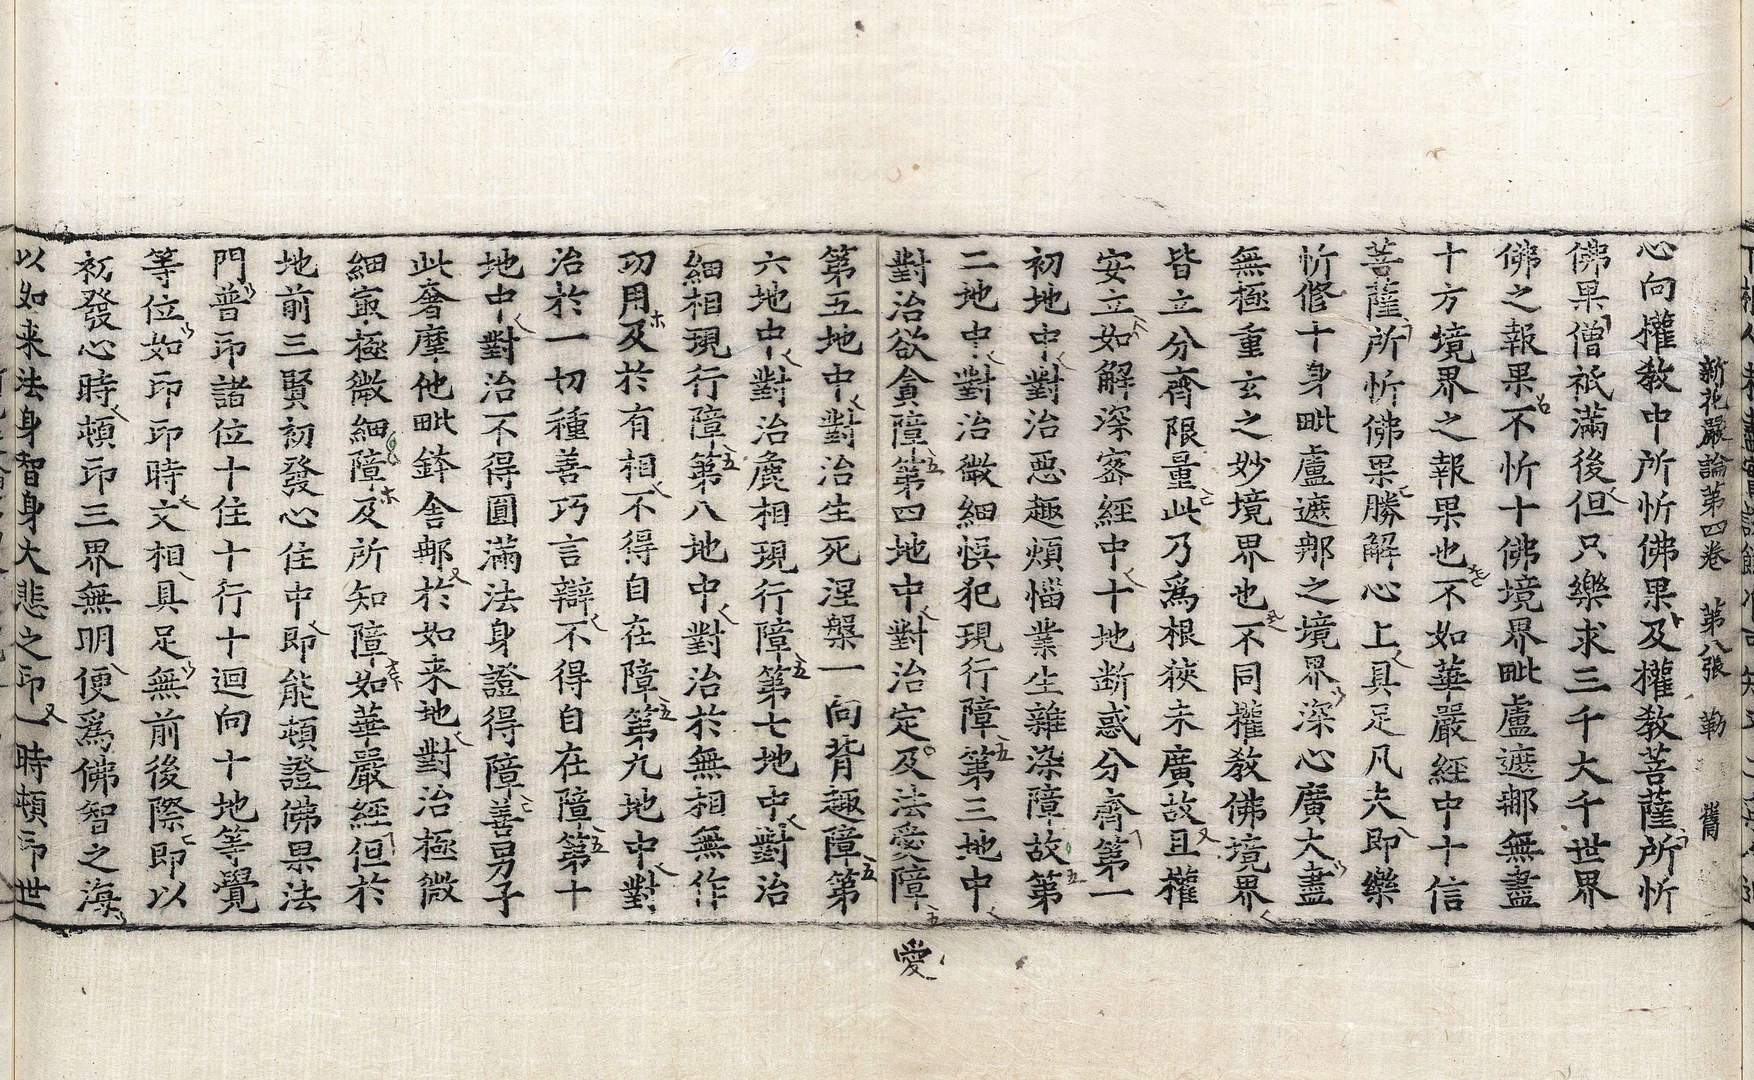 新花嚴論第四卷 第八張 勒 舊
心向權教中所忻佛果及權教菩薩所忻
佛果僧祇滿後但只樂求三千大千世界
佛之報果不忻十佛境界毗盧遮那無盡
十方境界之報果也不如華嚴經中十信
菩薩所忻佛果勝解心上具足凡夫即樂
忻修十身毗盧遮那之境界深心廣大盡
無極重玄之妙境界也不同權教佛境界
皆立分齊限量此乃爲根狹未廣故且權
安立如解深密經中十地斷惑分齊第一
初地中對治惡趣煩惱業生雜染障故第
二地中對治微細悞犯現行障第三地中
對治欲貪障第四地中對治定及法愛障
愛
第五地中對治生死涅槃一向背趣障第
六地中對治麁相現行障第七地中對治
細相現行障第八地中對治於無相無作
功用及於有相不得自在障第九地中對
治於一切種善巧言辯不得自在障第十
地中對治不得圓滿法身證得障善男子
此奢摩他毗鉢舍那於如来地對治極微
細㝡極微細障及所知障如華嚴經但於
地前三賢初發心住中即能頓證佛果法
門普印諸位十住十行十迴向十地等覺
等位如印印時文相具足無前後際即以
初發心時頓印三界無明便爲佛智之海
以如来法身智身大悲之印一時頓印世